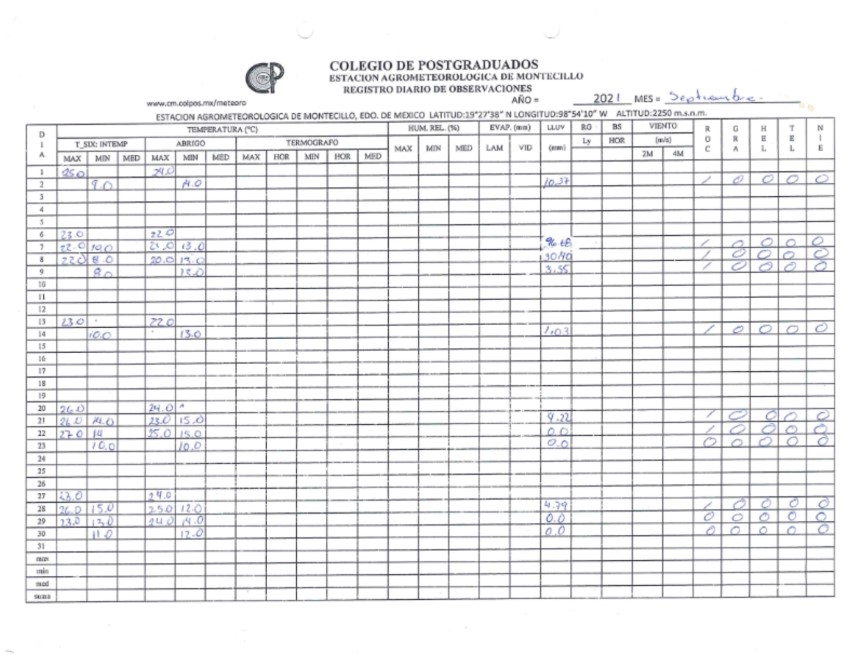 CP
www.cm.colpos.mx/meteoro
COLEGIO DE POSTGRADUADOS
ESTACION AGROMETEOROLOGICA DE MONTECILLO
REGISTRO DIARIO DE OBSERVACIONES
AÑO = 2021 MES = Septiembre.
ESTACION AGROMETEOROLOGICA DE MONTECILLO, EDO. DE MEXICO LATITUD:19°27'38" N LONGITUD:98°54'10" W ALTITUD:2250 m.s.n.m.
DIA TEMPERATURA (°C) HUM. REL. (%) EVAP. (mm) LLUV RG BS VIENTO ROC GRA HEL TEL NIE
T_SIX: INTEMP ABRIGO TERMOGRAFO (mm) Ly HOR (m/s)
MAX MIN MED MAX MIN MED MAX HOR MIN HOR MED MAX MIN MED LAM VID 2M 4M
1 25.0 24.0
2 9.0 14.0 10.57 / 0 0 0 0
3
4
5
6 23.0 22.0
7 22.0 10.0 21.0 13.0 96.68 / 0 0 0 0
8 22.0 8.0 20.0 13.0 30.40 / 0 0 0 0
9 8.0 3.55 / 0 0 0 0
10
11
12
13 23.0 22.0
14 10.0 13.0 1.03 / 0 0 0 0
15
16
17
18
19
20 26.0 24.0
21 26.0 14.0 23.0 15.0 9.22 / 0 0 0 0
22 27.0 14 25.0 15.0 0.0 / 0 0 0 0
23 10.0 10.0 0.0 0 0 0 0 0
24
25
26
27 23.0 24.0
28 26.0 15.0 25.0 12.0 4.79 / 0 0 0 0
29 23.0 13.0 24.0 14.0 0.0 0 0 0 0 0
30 11.0 12.0 0.0 0 0 0 0 0
31
max
min
med
suma